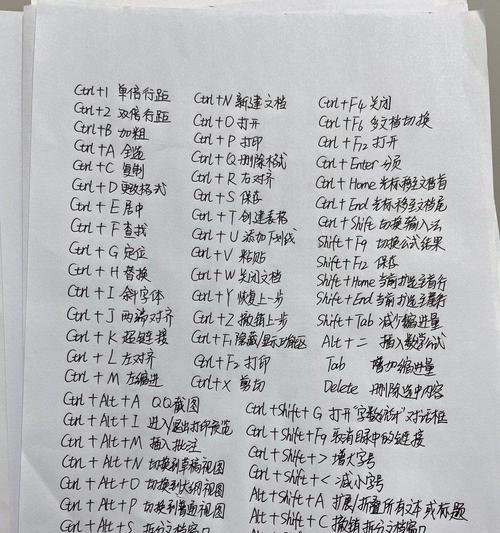 Ctrl+1 单倍行距
Ctrl+2 双倍行距
Ctrl+B 加粗
Ctrl+A 全选
Ctrl+C 复制
Ctrl+D 更改格式
Ctrl+E 居中
Ctrl+F 查找
Ctrl+G 定位
Ctrl+H 替换
Ctrl+I 斜字体
Ctrl+J 两端对齐
Ctrl+K 超链接
Ctrl+L 左对齐
Ctrl+M 左缩进
Ctrl+N 新建文档
Ctrl+O 打开
Ctrl+P 打印
Ctrl+Q 删除格式
Ctrl+R 右对齐
Ctrl+S 保存
Ctrl+T 创建表格
Ctrl+U 添加下划线
Ctrl+V 粘贴
Ctrl+W 关闭文档
Ctrl+Y 恢复上一步
Ctrl+Z 撤销上一步
Ctrl+F1 隐藏/显示功能区
Ctrl+F2 打印
Ctrl+X 剪切
Ctrl+F4 关闭
Ctrl+F6 多文档切换
Ctrl+F12 打开
Ctrl+Enter 分页
Ctrl+Home 光标移至文档首
Ctrl+End 光标移至文档尾
Ctrl+Shift 切换输入法
Shift+F9 切换公式结果
Shift+F12 保存
Shift+Home 当前折选至首行
Shift+End 当前折选至尾行
Shift+Tab 减少缩进量
Alt+= 插入数学公式
Tab 增加缩进量
Delete 删除选中内容
Ctrl+Alt+A QQ截图
Ctrl+Alt+I 进入退出打印预览
Ctrl+Alt+M 插入批注
Ctrl+Alt+N 切换到草稿视图
Ctrl+Alt+O 切换到大纲视图
Ctrl+Alt+P 切换到普通视图
Ctrl+Alt+S 拆分文档窗口
Ctrl+Shift+G 打开"字数统计"对话框
Ctrl+Shift+F9 取消目录中的链接
Ctrl+Shift+> 增大字号
Ctrl+Shift+< 减小字号
Alt+Shift+A 扩展/折叠所有文本或标题
Alt+Shift+C 撤销拆分文档窗口